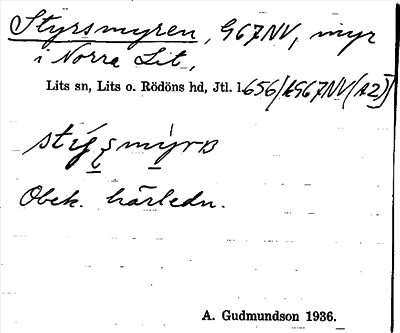 Styrsmyren, 967NV, myr
i Norra Lit,
Lits sn, Lits o. Rödöns hd, Jtl. 1656/1967NV(A2)
Obek. härledn.
A. Gudmundson 1936.